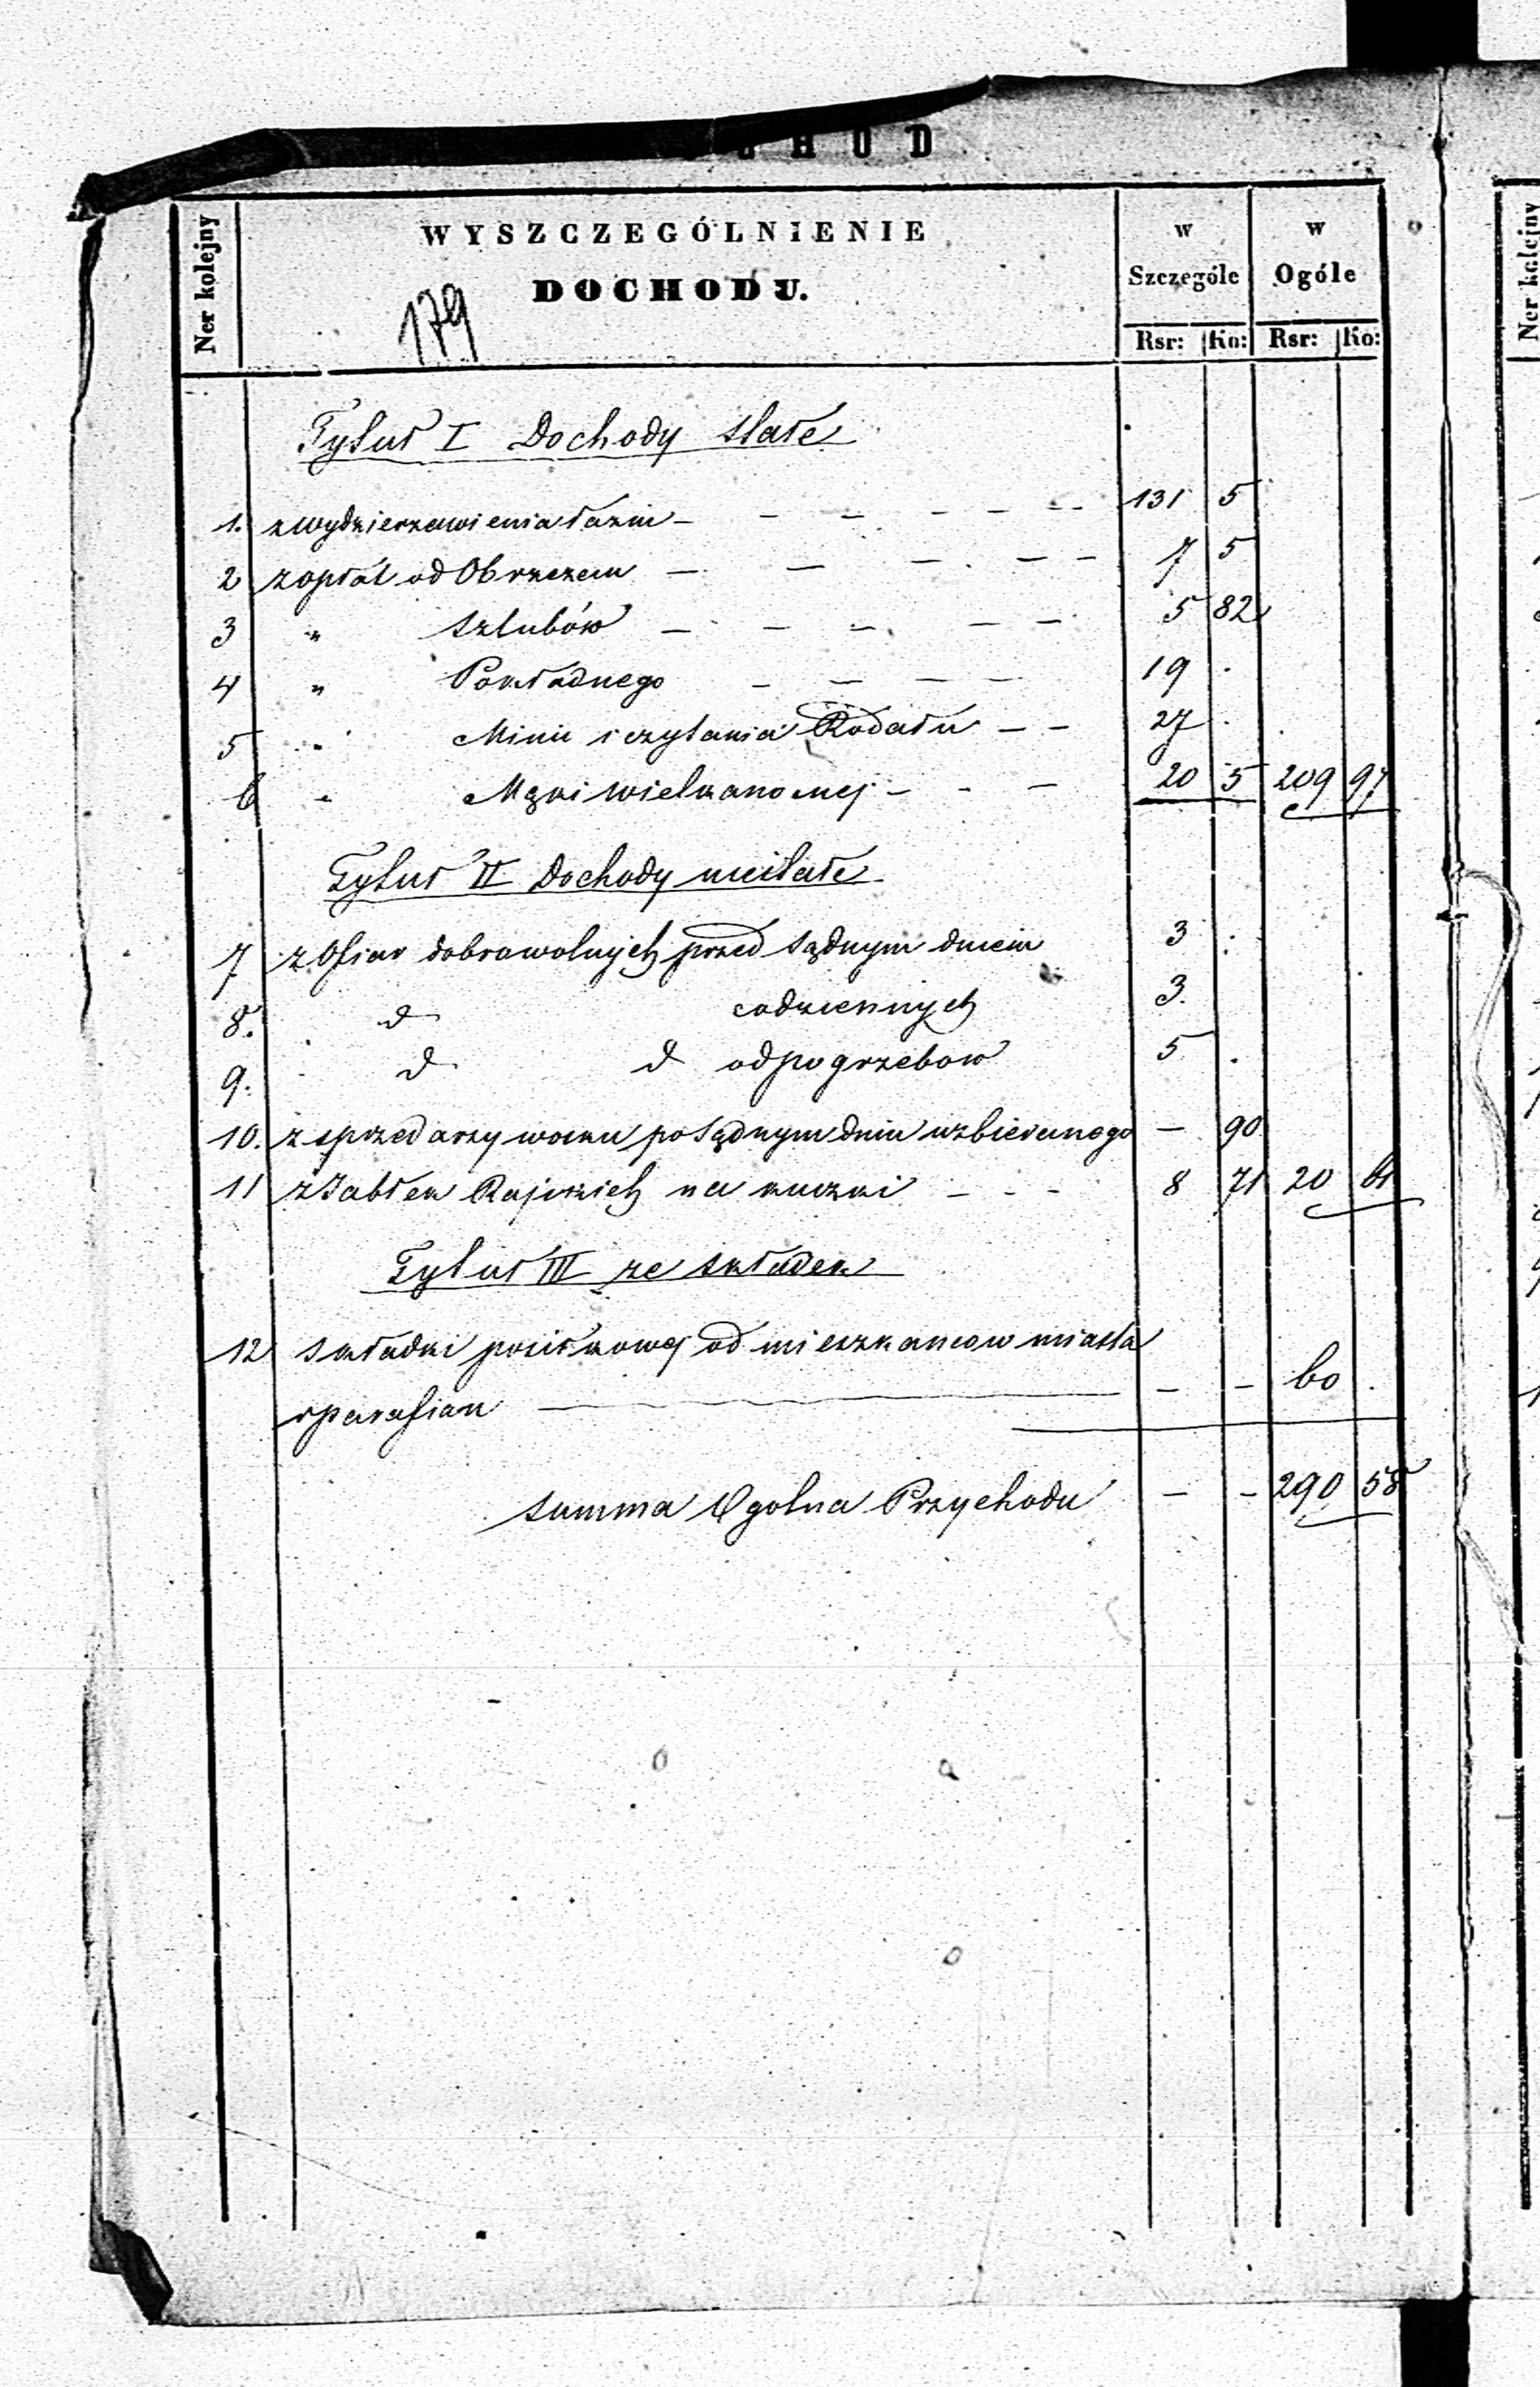 CHÓD
Ner kolejny
WYSZCZEGÓLNIENIE
DOCHODU.
179
w Szczególe
w Ogóle
Rsr: Ko: Rsr: Ko:
Tytuł I Dochody stałe
1. z wydzierzawienia łazni — — — — — 131 5
2 z opłat od Obrzezan — — — — — 7 5
3 " szlubów — — — — — 5 82
4 " Pokładnego — — — — 19 .
5 " Minii i czytania Rodału — — 27 .
6 " Mąki wielkanocnej — — — 20 5 209 97
Tytuł II Dochody niestałe
7 z Ofiar dobrowolnych przed sądnym dniem 3 .
8. d codziennych 3.
9. d d od pogrzebow 5 .
10. z sprzedarzy wosku po Sądnym dniu uzbieranego — 90
11 z Jabłek Rajskich na kuczki — — — 8 71 20 61
Tytuł III ze składek
12 składki posiłkowej od mieszkancow miasta
i parafian — — — 60 .
Summa Ogolna Przychodu — — 290 58
Ner kolejny